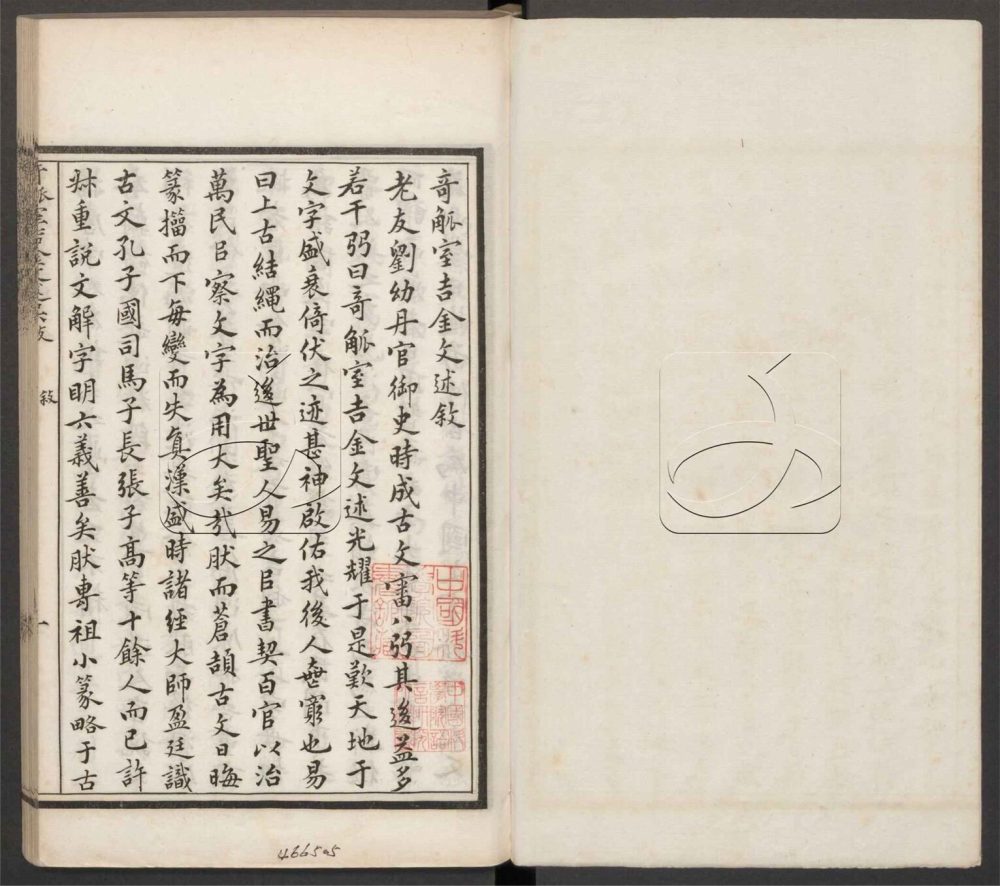 奇觚室吉金文述敘
老友劉幼丹官御史時成古文審八弜其後益多
若干弜曰奇觚室吉金文述光耀于是歎天地于
文字盛衰倚伏之迹甚神啟佑我後人無窮也易
曰上古結繩而治後世聖人易之㠯書契百官以治
萬民㠯察文字為用大矣哉肰而蒼頡古文日晦
篆籀而下每變而失真漢盛時諸經大師盈廷識
古文孔子國司馬子長張子高等十餘人而已許
尗重說文解字明六義善矣肰專祖小篆略于古
敘
一
466505